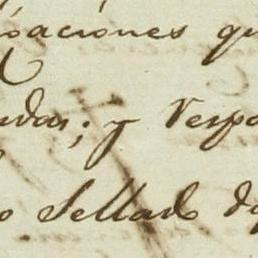 oaciones qu
udas; y Respo
o Sellado de